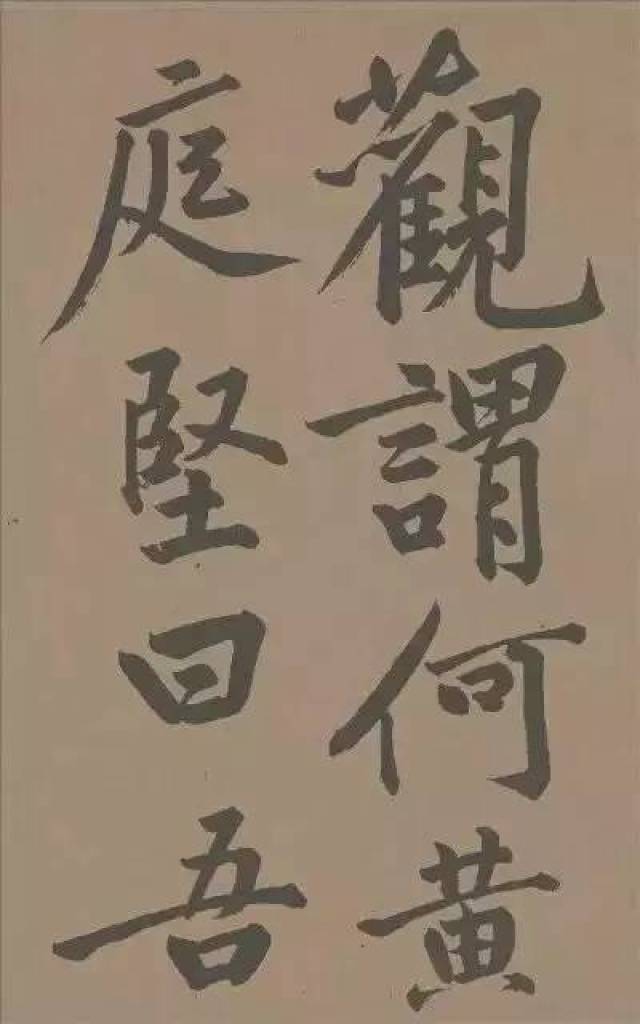 觀謂何黄
庭堅曰吾